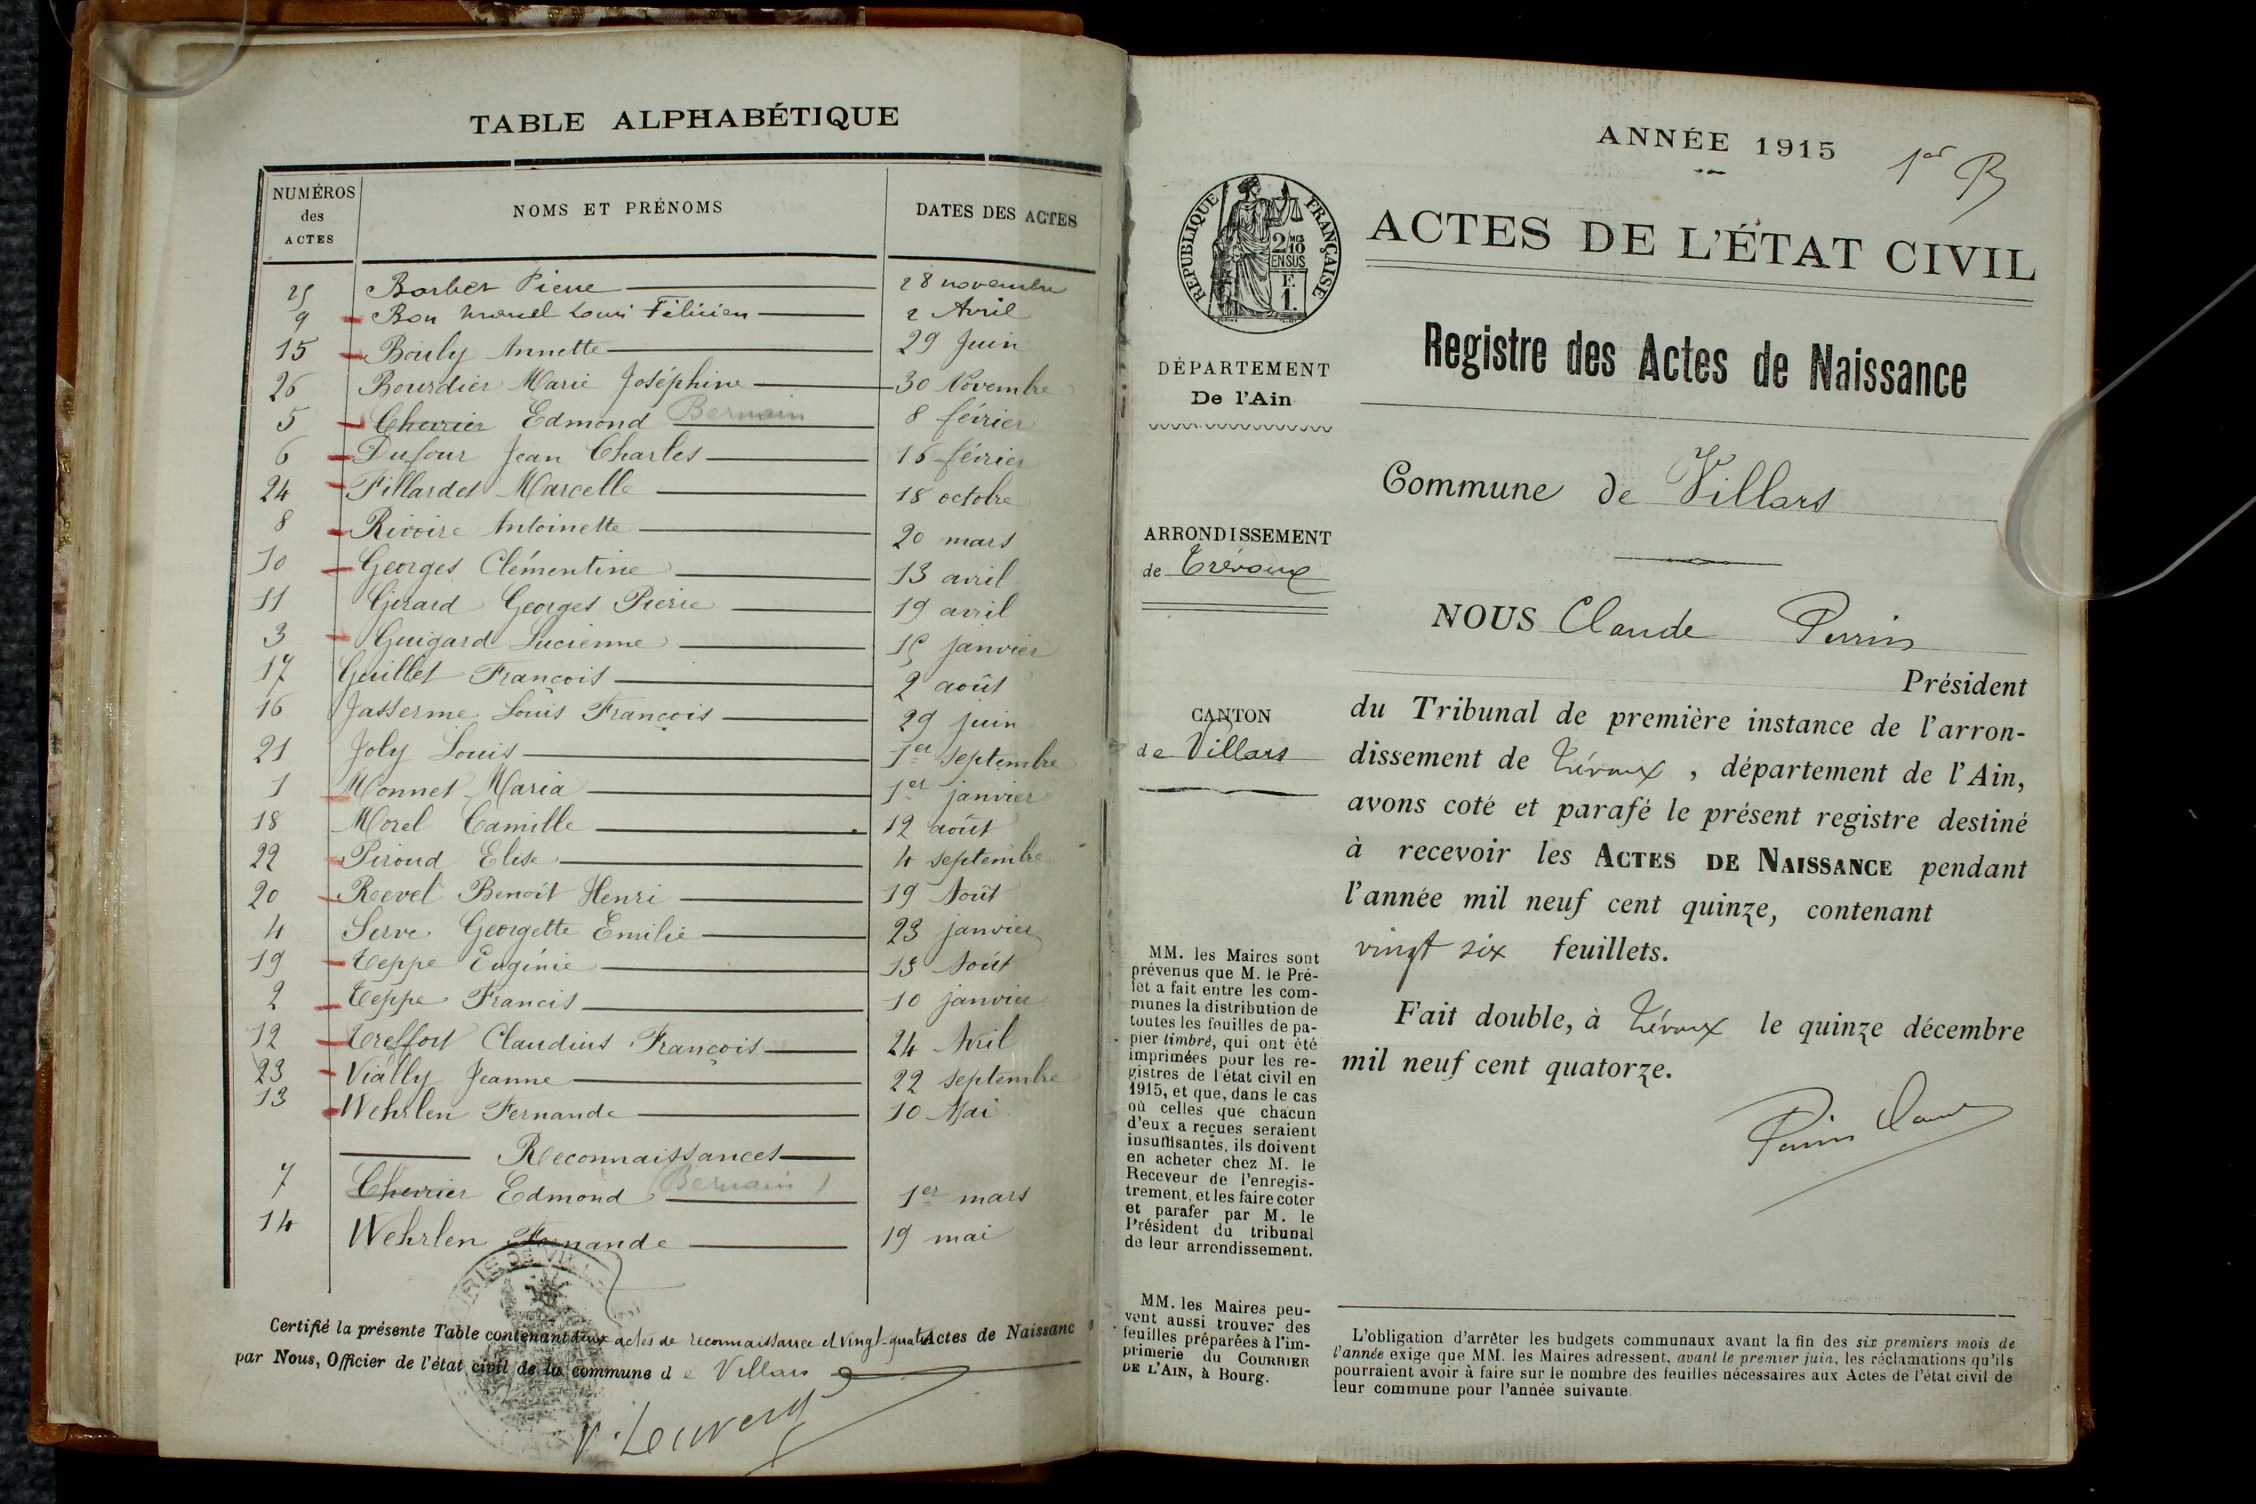 TABLE ALPHABÉTIQUE
NUMÉROS des ACTES
NOMS ET PRÉNOMS
DATES DES ACTES
25 Barber Pierre 28 novembre
9 Bon Marcel Louis Félicien 2 Avril
15 Bouly Annette 29 Juin
26 Bourdier Marie Joséphine 30 Novembre
5 Chevrier Edmond Bernain 8 février
6 Dufour Jean Charles 16 février
24 Fillardet Marcelle 18 octobre
8 Rivoire Antoinette 20 mars
10 Georges Clémentine 13 avril
11 Girard Georges Pierre 19 avril
3 Guigard Lucienne 15 janvier
17 Guillet François 2 août
16 Jasserme Louis François 29 juin
21 Joly Louis 1er septembre
1 Monnet Maria 1er janvier
18 Morel Camille 12 août
22 Piroud Elise 4 septembre
20 Revel Benoît Henri 19 Août
4 Serve Georgette Emilie 23 janvier
19 Teppe Eugénie 13 Août
2 Teppe Francis 10 janvier
12 Treffort Claudius François 24 Avril
23 Vially Jeanne 22 septembre
13 Wehrlen Fernande 10 Mai
Reconnaissances
7 Chevrier Edmond (Bernain) 1er mars
14 Wehrlen Fernande 19 mai
Certifié la présente Table contenant deux actes de reconnaissance et vingt-quatre Actes de Naissanc
par Nous, Officier de l'état civil de la commune de Villars
ANNÉE 1915
1er
RÉPUBLIQUE FRANÇAISE
2/10 MES
EN SUS
F.
1.
ACTES DE L'ÉTAT CIVIL
Registre des Actes de Naissance
DÉPARTEMENT
De l'Ain
Commune de Villars
ARRONDISSEMENT
de Trévoux
NOUS Claude Perrin
Président
CANTON
de Villars
du Tribunal de première instance de l'arron-
dissement de Trévoux, département de l'Ain,
avons coté et parafé le présent registre destiné
à recevoir les ACTES DE NAISSANCE pendant
l'année mil neuf cent quinze, contenant
vingt six feuillets.
Fait double, à Trévoux le quinze décembre
mil neuf cent quatorze.
Perrin Claude
MM. les Maires sont
prévenus que M. le Pré-
fet a fait entre les com-
munes la distribution de
toutes les feuilles de pa-
pier timbré, qui ont été
imprimées pour les re-
gistres de l'état civil en
1915, et que, dans le cas
où celles que chacun
d'eux a reçues seraient
insuffisantes, ils doivent
en acheter chez M. le
Receveur de l'enregis-
trement, et les faire coter
et parafer par M. le
Président du tribunal
de leur arrondissement.
MM. les Maires peu-
vent aussi trouver des
feuilles préparées à l'im-
primerie du COURRIER
DE L'AIN, à Bourg.
L'obligation d'arrêter les budgets communaux avant la fin des six premiers mois de
l'année exige que MM. les Maires adressent, avant le premier juin, les réclamations qu'ils
pourraient avoir à faire sur le nombre des feuilles nécessaires aux Actes de l'état civil de
leur commune pour l'année suivante.